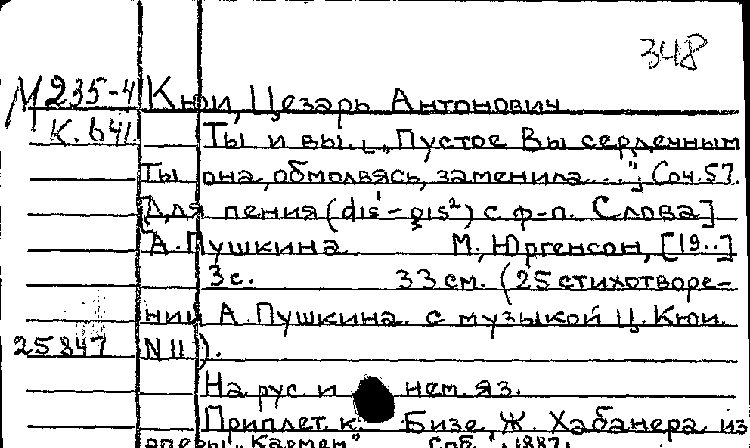 348
М 235-4 Кюи, Цезарь Антонович
К. 641 Ты и вы. „Пустое Вы сердечным
Ты она, обмолвясь, заменила..."; Соч. 57.
[Для пения (dis¹-gis²) с ф-п. Слова]
А. Пушкина М., Юргенсон, [19..]
3 с. 33 см. (25 стихотворе-
ний А. Пушкина с музыкой Ц. Кюи.
25847 N 11).
На рус. и нем. яз.
Приплет. к: Бизе, Ж. Хабанера из
оперы „Кармен" Спб., 1887.